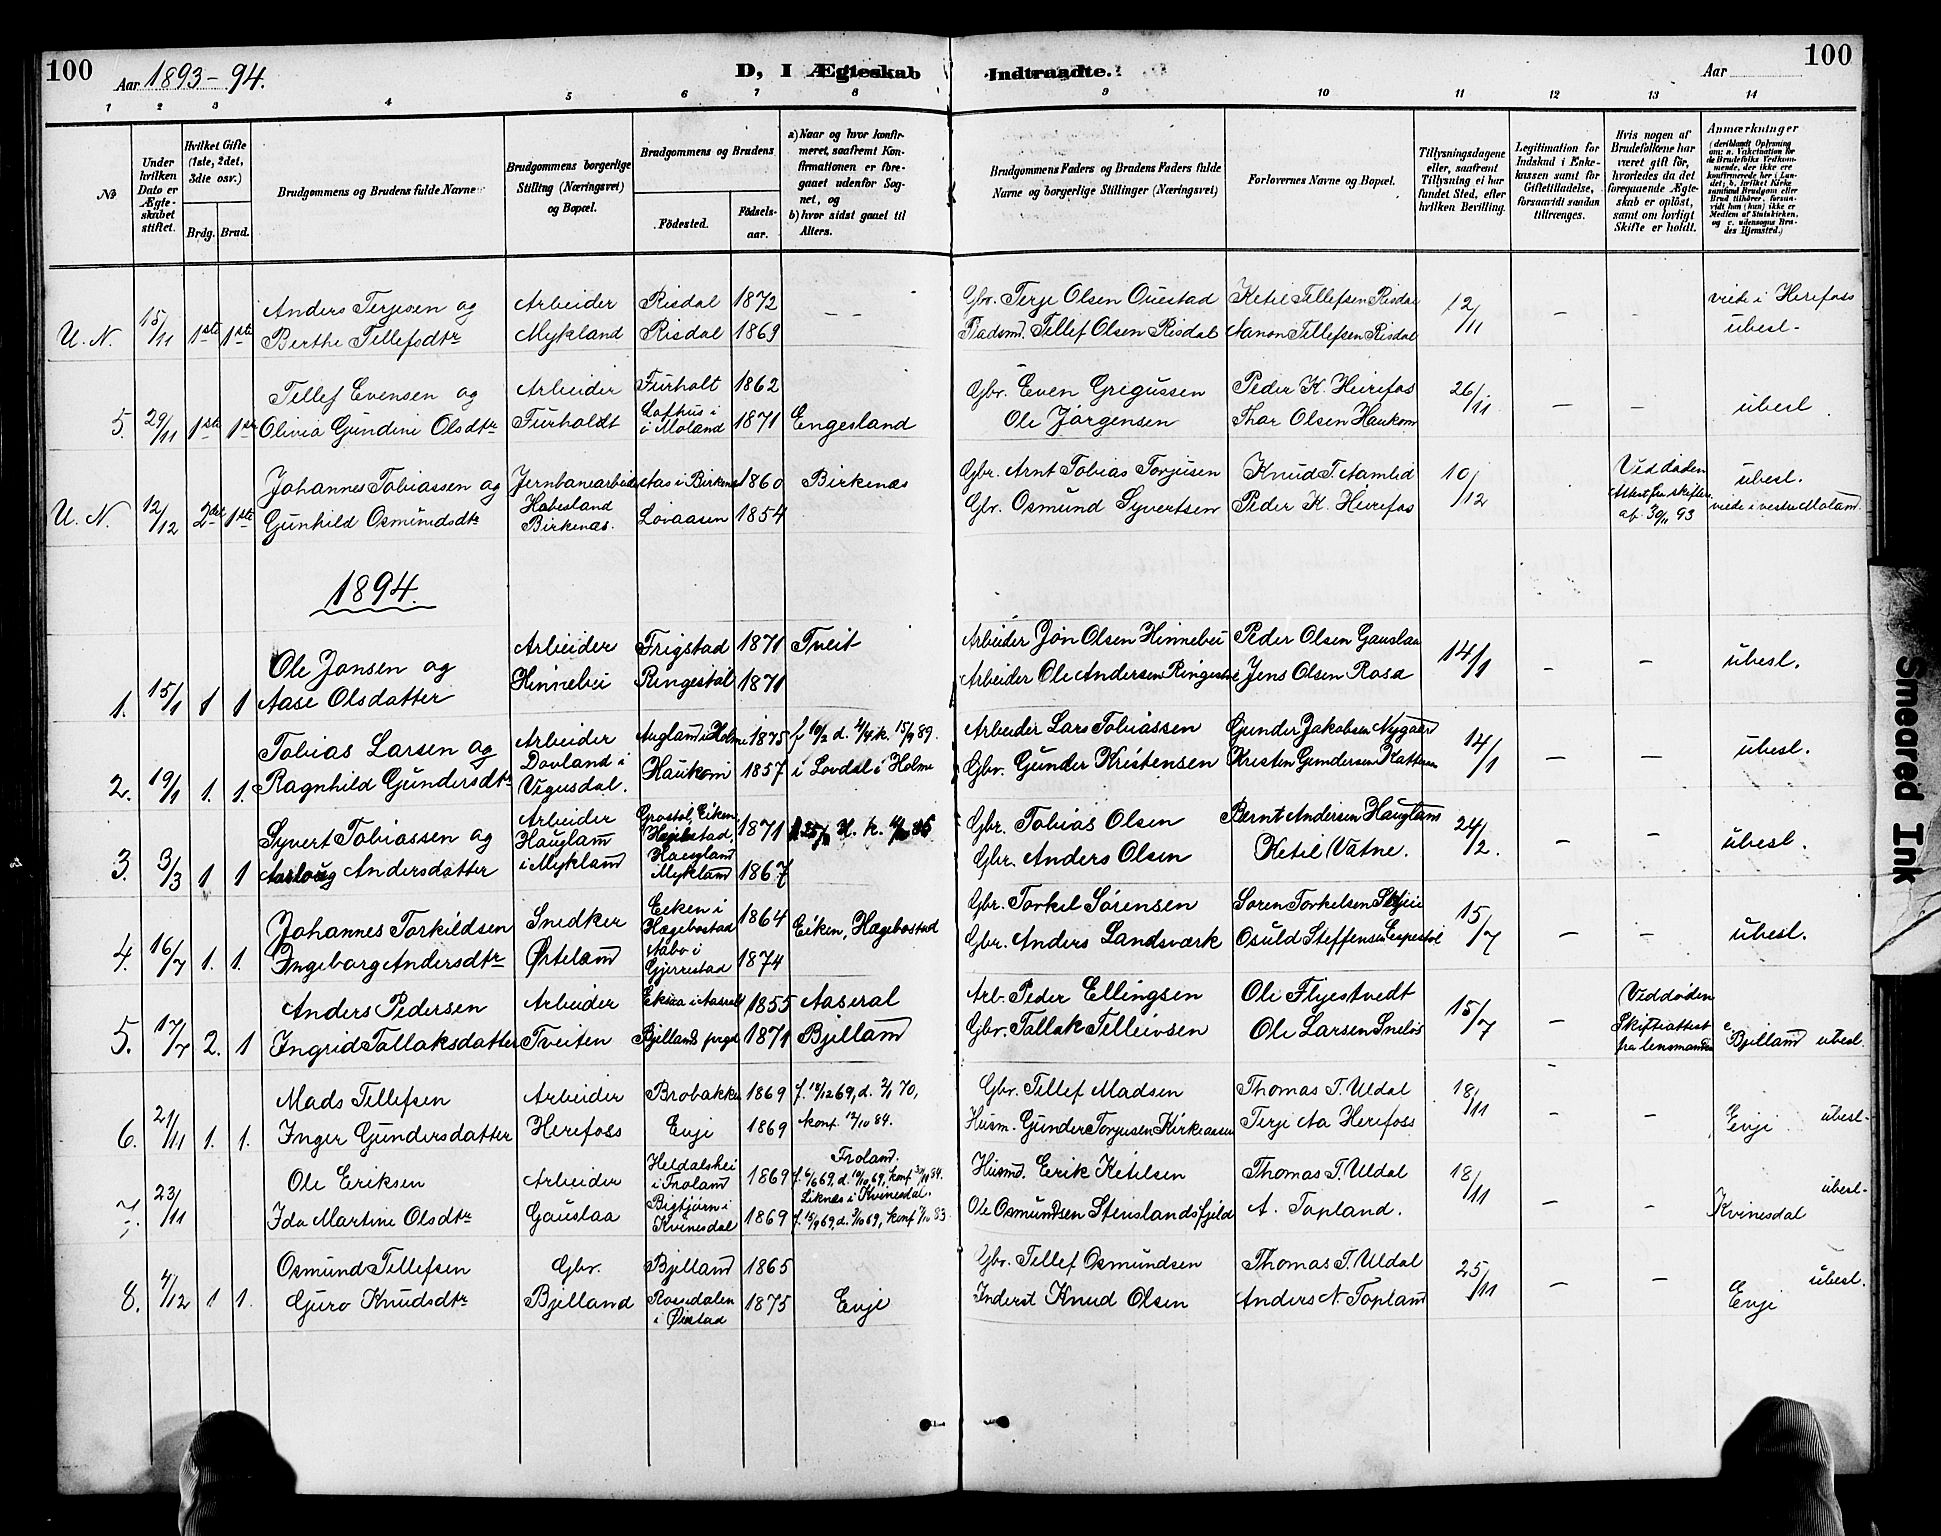 100
Aar 1893-94.
D, I Ægteskab Indtraadte.
Aar
100
1 2 3 4 5 6 7 8 9 10 11 12 13 14
No
Under hvilken Dato er Ægteskabet stiftet.
Hvilket Gifte (1ste, 2det, 3die osv.)
Brdg. Brud.
Brudgommens og Brudens fulde Navne
Brudgommens borgerlige Stilling (Næringsvei) og Bopæl.
Brudgommens og Brudens
Födested.
Födselsaar.
a) Naar og hvor konfirmeret, saafremt Konfirmationen er foregaaet udenfor Sognet, og
b) hvor sidst gaaet til Alters.
Brudgommens Faders og Brudens Faders fulde Navne og borgerlige Stillinger (Næringsvei)
Forlovernes Navne og Bopæl.
Tillysningsdagene eller, saafremt Tillysning ei har fundet Sted, efter hvilken Bevilling.
Legitimation for Indskud i Enkekassen samt for Giftetilladelse, forsaavidt saadan tiltrænges.
Hvis nogen af Brudefolkene har været gift før, hvorledes da det foregaaende Ægteskab er oplöst, samt om lovligt Skifte er holdt.
Anmærkninger (deriblandt Oplysning om: a. Vakcination for de Brudefolks Vedkommende, der ikke ere konfirmerede her i Landet; b. hvilket Kirkesamfund Brudgom eller Brud tilhører, forsaavidt han (hun) ikke er Medlem af Statskirken, og c. udensogns Brudes Hjemsted.)
Anders Terjesen og Arbeider Risdal 1872 — — Gbr. Terje Olsen Ouestad Ketil Tellefsen Risdal 12/11 — - viede i Herefoss
U. N. 15/11 1ste 1ste Berthe Tellefsdtr Mykland Risdal 1869 Pladsmd. Tellef Olsen Risdal Aanon Tellefsen Risdal ubesl-
Tellef Evensen og Arbeider Furholt 1862 Gbr. Even Gregussen Peder K. Heirefos 26/11 — —
5. 29/11 1ste 1ste Olivia Gundine Olsdtr Furholdt Lofhus i i Moland 1871 Engesland Ole Jørgensen Thor Olsen Haukom ubesl
Johannes Tobiassen og Jernbanearbeider Aas i Birkenæs 1860 Birkenæs Gbr. Arnt Tobias Torjusen Knud T. Aamlid 10/12 Ved døden ubesl.
U. N. 12/12 2de 1ste Gunhild Osmundsdtr Habesland Birkenæs. Lovaasen 1854 Gbr. Osmund Syvertsen Peder K. Heirefos Attest fra skifter. af 30/11 93 viede i vestre Moland.
1894.
Ole Jonsen og Arbeider Frigstad 1871 Tveit Arbeider Jon Olsen Hinnebu Peder Olsen Gauslaa 14/1 — — ubesl.
1. 15/1 1 1 Aase Olsdatter Hinnebu Ringestøl 1871 Arbeider Ole Andersen Ringestøl Jens Olsen Rosa
Tobias Larsen og Arbeider Augland i Holme 1875 Arbeider Lars Tobiassen Gunder Jakobsen Nygaar 14/1 ubesl.
2. 19/1 1. 1. Ragnhild Gundersdtr Dovland i Vegusdal. Haukom 1857 i Lovdal i Holme Gbr. Gunder Kristensen Kristen Gundersen
Syvert Tobiassen og Arbeider Eiken Hægebostad, 1871 Gbr. Tobias Olsen Bernt Andersen Haugland 24/2. — — ubesl.
3. 3/3 1. 1 Aaslaug Andersdatter Haugland i Mykland Haugland Mykland 1867 Gbr. Anders Olsen Ketil Vatne.
Johannes Torkildsen Snedker Eiken i Hægebostad 1864 Eiken, Hægebostad Gbr. Torkel Sørensen Søren Torkelsen 15/7 — — ubesl.
4. 16/7 1. 1. Ingeborg Andersdtr Ørteland Aabo i Gjerrestad 1874 Gbr. Anders Landsværk Osuld Steffensen Espestøl
Anders Pedersen Arbeider i Aaseral 1855 Aaseral Arb. Peder Ellingsen Ole Flyestvedt 15/7 — Ved døden
5. 17/7 2. 1 Ingrid Tallaksdatter Tveiten Bjelland prgd 1871 Bjelland Gbr. Tallak Telleivsen Ole Larsen Sneløs Skifteattest fra lensmanden c Bjelland ubesl.
Mads Tellefsen Arbeider Brobakken 1869 f. 18/12 69, d. 2/1 70, Gbr. Tellef Madsen Thomas T. Uldal 18/11 — —
6. 21/11 1. 1. Inger Gundersdatter Herefoss Evje 1869 konf. 12/10 84. Husm. Gunder Torjusen Thomas Terje Aa Herefoss Evje ubesl-
Ole Eriksen Arbeider Heldalshei i Froland 1869 Froland. f. 6/6 69, d. 10/10 69, konf 84. Husmd. Eerik Ketelsen Thomas T. Uldal 18/11 ubesl-
7. 23/11 Ida Martine Olsdtr Gauslaa Kvinesdal 1869 Liknæs i Kvinesdal. f. 15/9 69, d. 3/10 69, konf 7/10 83. Ole Osmundsen Stenslandsfjeld A. Topland. - Kvinesdal
Osmund Tellefsen Gbr. Bjelland 1865 Gbr. Tellef Osmundsen Thomas T. Uldal 25/11 — — ubesl.
8. 4/12 1 1. Guro Knudsdtr Bjelland Rosedalen i Øiestad 1875 Evje Inderst Knud Olsen Anders N. Topland Evje
Smeared Ink